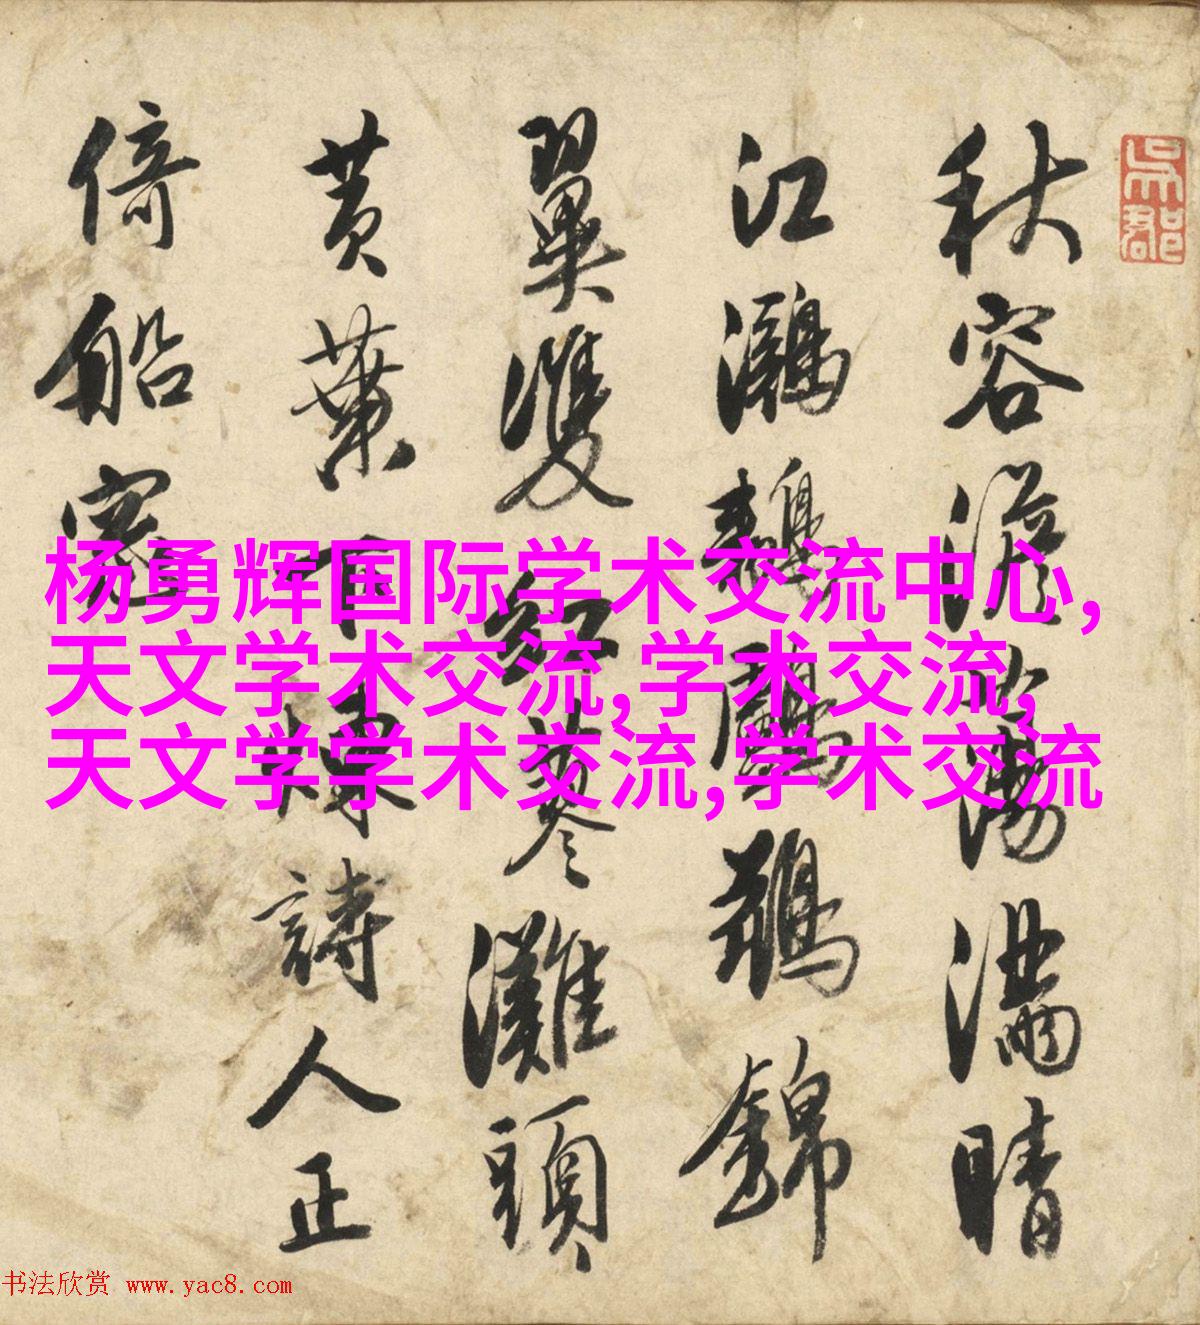 吳郡
秋容澹蕩滿晴
江鸂鶒鸕鶿錦
翼雙紅蓼灘頭
黄葉下詩人正
倚船窓
杨勇辉国际学术交流中心,
天文学术交流,学术交流,
天文学学术交流,学术交流
书法欣赏 www.yac8.com